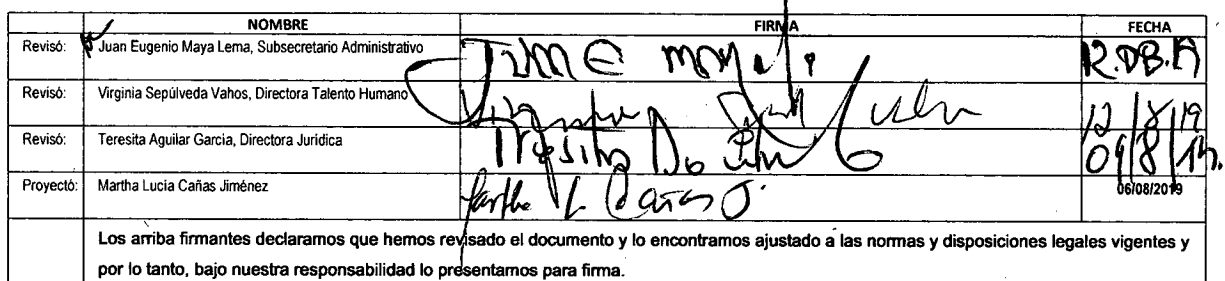 NOMBRE FIRMA FECHA
Revisó: Juan Eugenio Maya Lema, Subsecretario Administrativo
Revisó: Virginia Sepúlveda Vahos, Directora Talento Humano 12/8/19
Revisó: Teresita Aguilar Garcia, Directora Jurídica 09/8/19
Proyectó: Martha Lucia Cañas Jiménez Martha L. Cañas J. 06/08/2019
Los arriba firmantes declaramos que hemos revisado el documento y lo encontramos ajustado a las normas y disposiciones legales vigentes y
por lo tanto, bajo nuestra responsabilidad lo presentamos para firma.